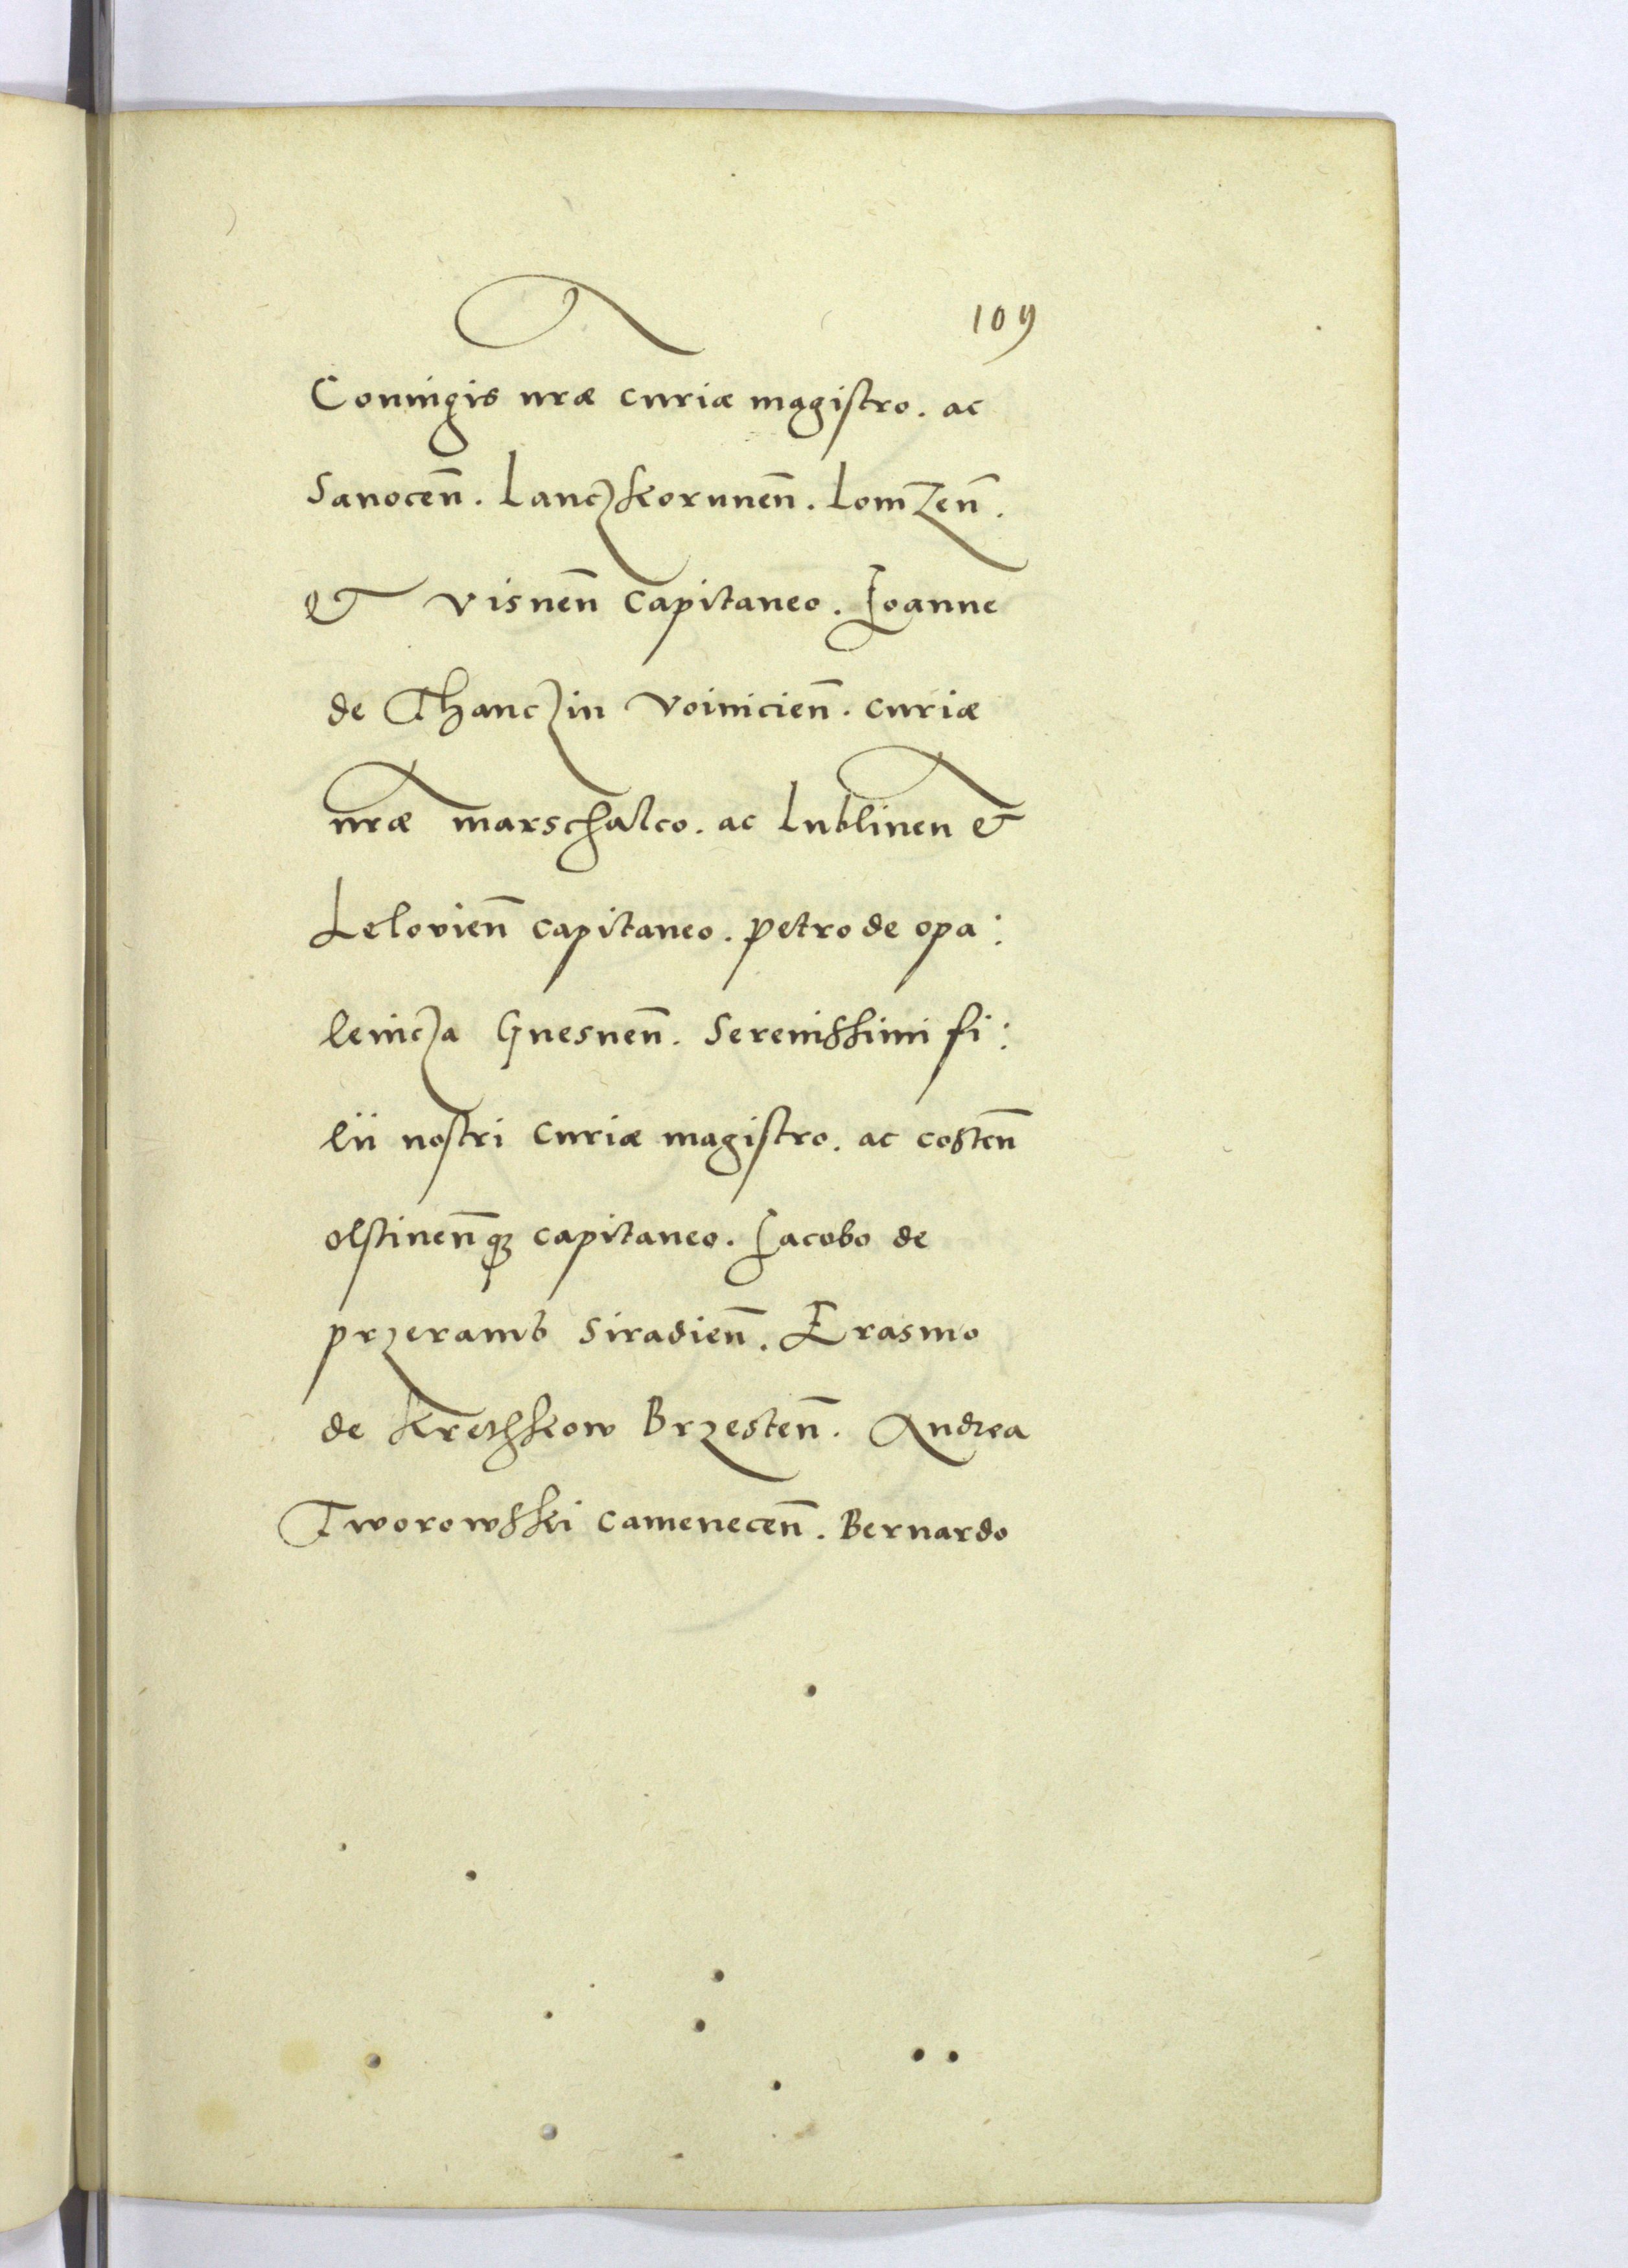 109
Coniugis nræ curiæ magistro. ac
Sanoceñ. Lanczkoruneñ. Lomzeñ.
& visneñ capitaneo. Ioanne
de Thanczin Voinicieñ. curiæ
nræ marschalco. ac Lublinen &
Lelovieñ capitaneo. Petro de opa:
lenicza Gnesneñ. Serenissimi fi:
lii nostri curiæ magistro. ac costeñ
olstineñqꝫ capitaneo. Iacobo de
przeramb Siradieñ. Erasmo
de Krethkow Brzesteñ. Andrea
Tworowski cameneceñ. Bernardo